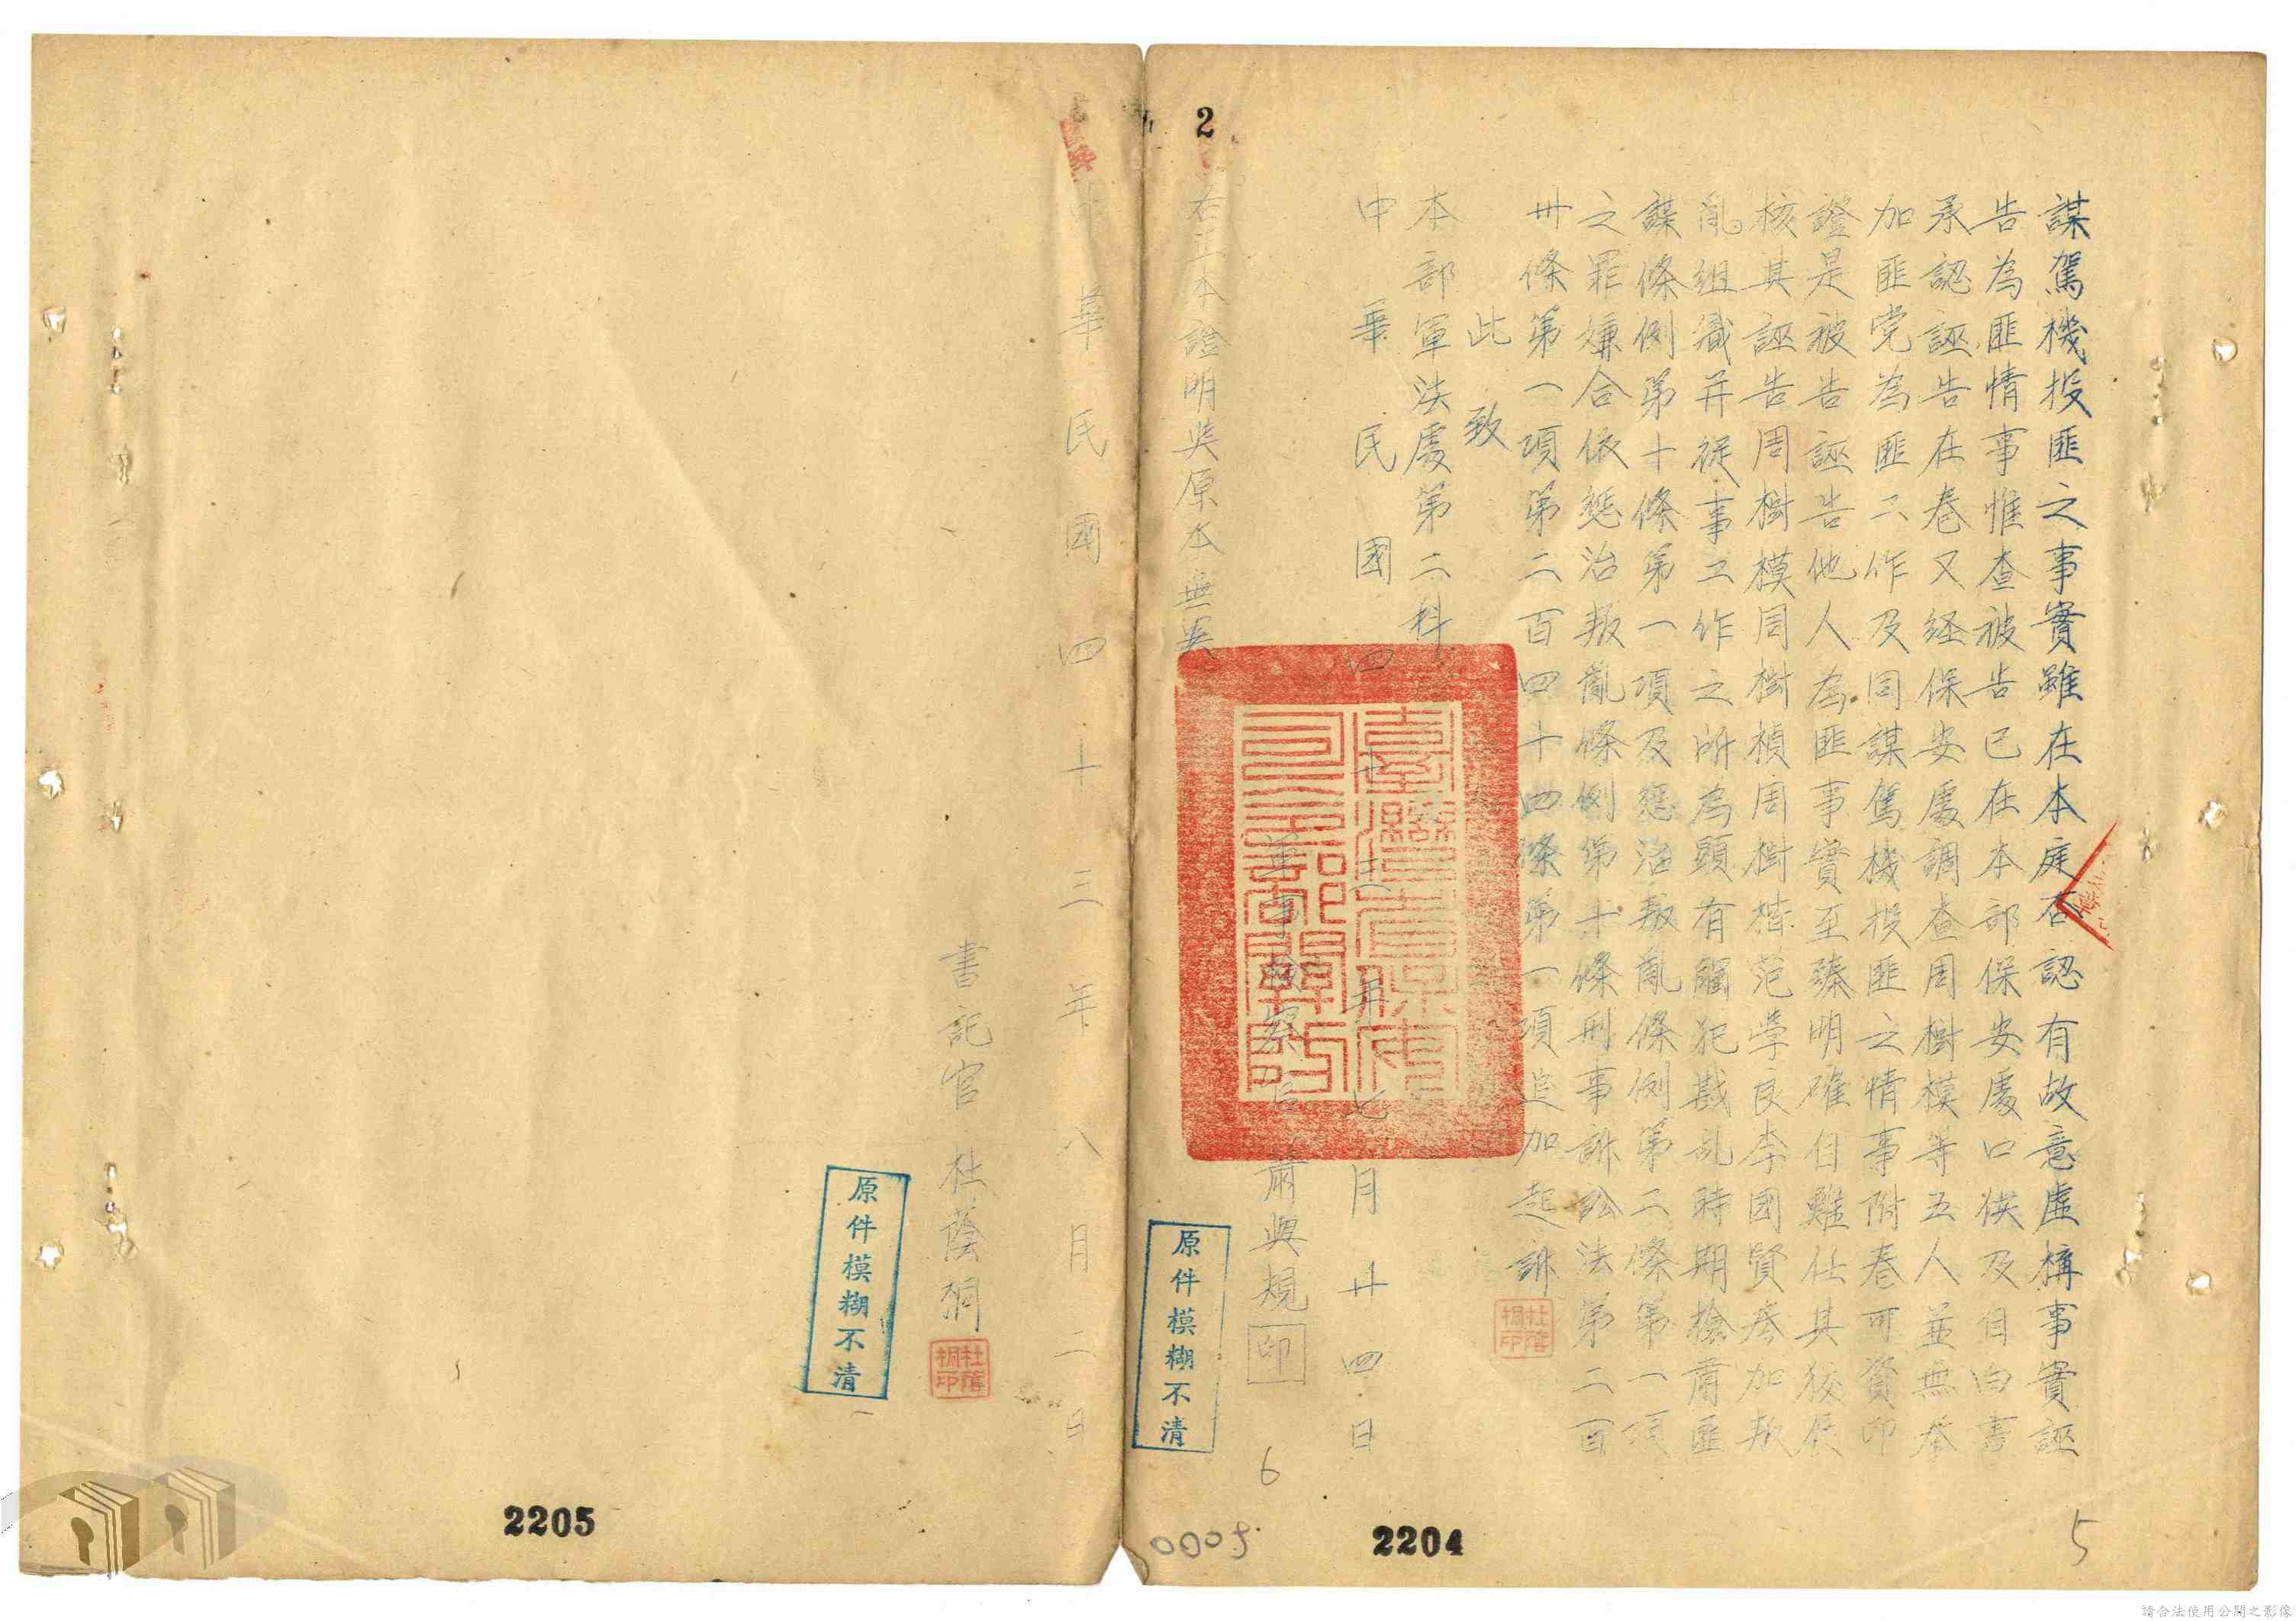 謀駕機投匪之事實雖在本庭否認有故意虛構事實誣
告為匪情事惟查被告已在本部保安處口供及自白書
承認誣告在卷又経保安處調查周樹模等五人並無參
加匪党為匪工作及同謀駕機投匪之情事附卷可資印
證是被告誣告他人為匪事實至臻明確自難任其狡展
核其誣告周樹模周樹楨周樹楷范學良李國賢參加叛
亂組織并從事工作之所為顯有觸犯戡乱時期檢肅匪
諜條例第十條第一項及懲治叛亂條例第二條第一項
之罪嫌合依懲治叛亂條例第十條刑事訴訟法第二百
卅條第一項第二百四十四條第一項追加起訴
此致
本部軍法處第二科
中華民國四十三年七月廿四日
軍事檢察官 蕭與規 印
右正本證明與原本無異
中華民國四十三年八月二日
書記官 杜蔭桐
杜蔭桐印
杜蔭桐印
臺灣省保安司令部關防
原件模糊不清
原件模糊不清
2
5
6
0005
2204
2205
請合法使用公開之影像